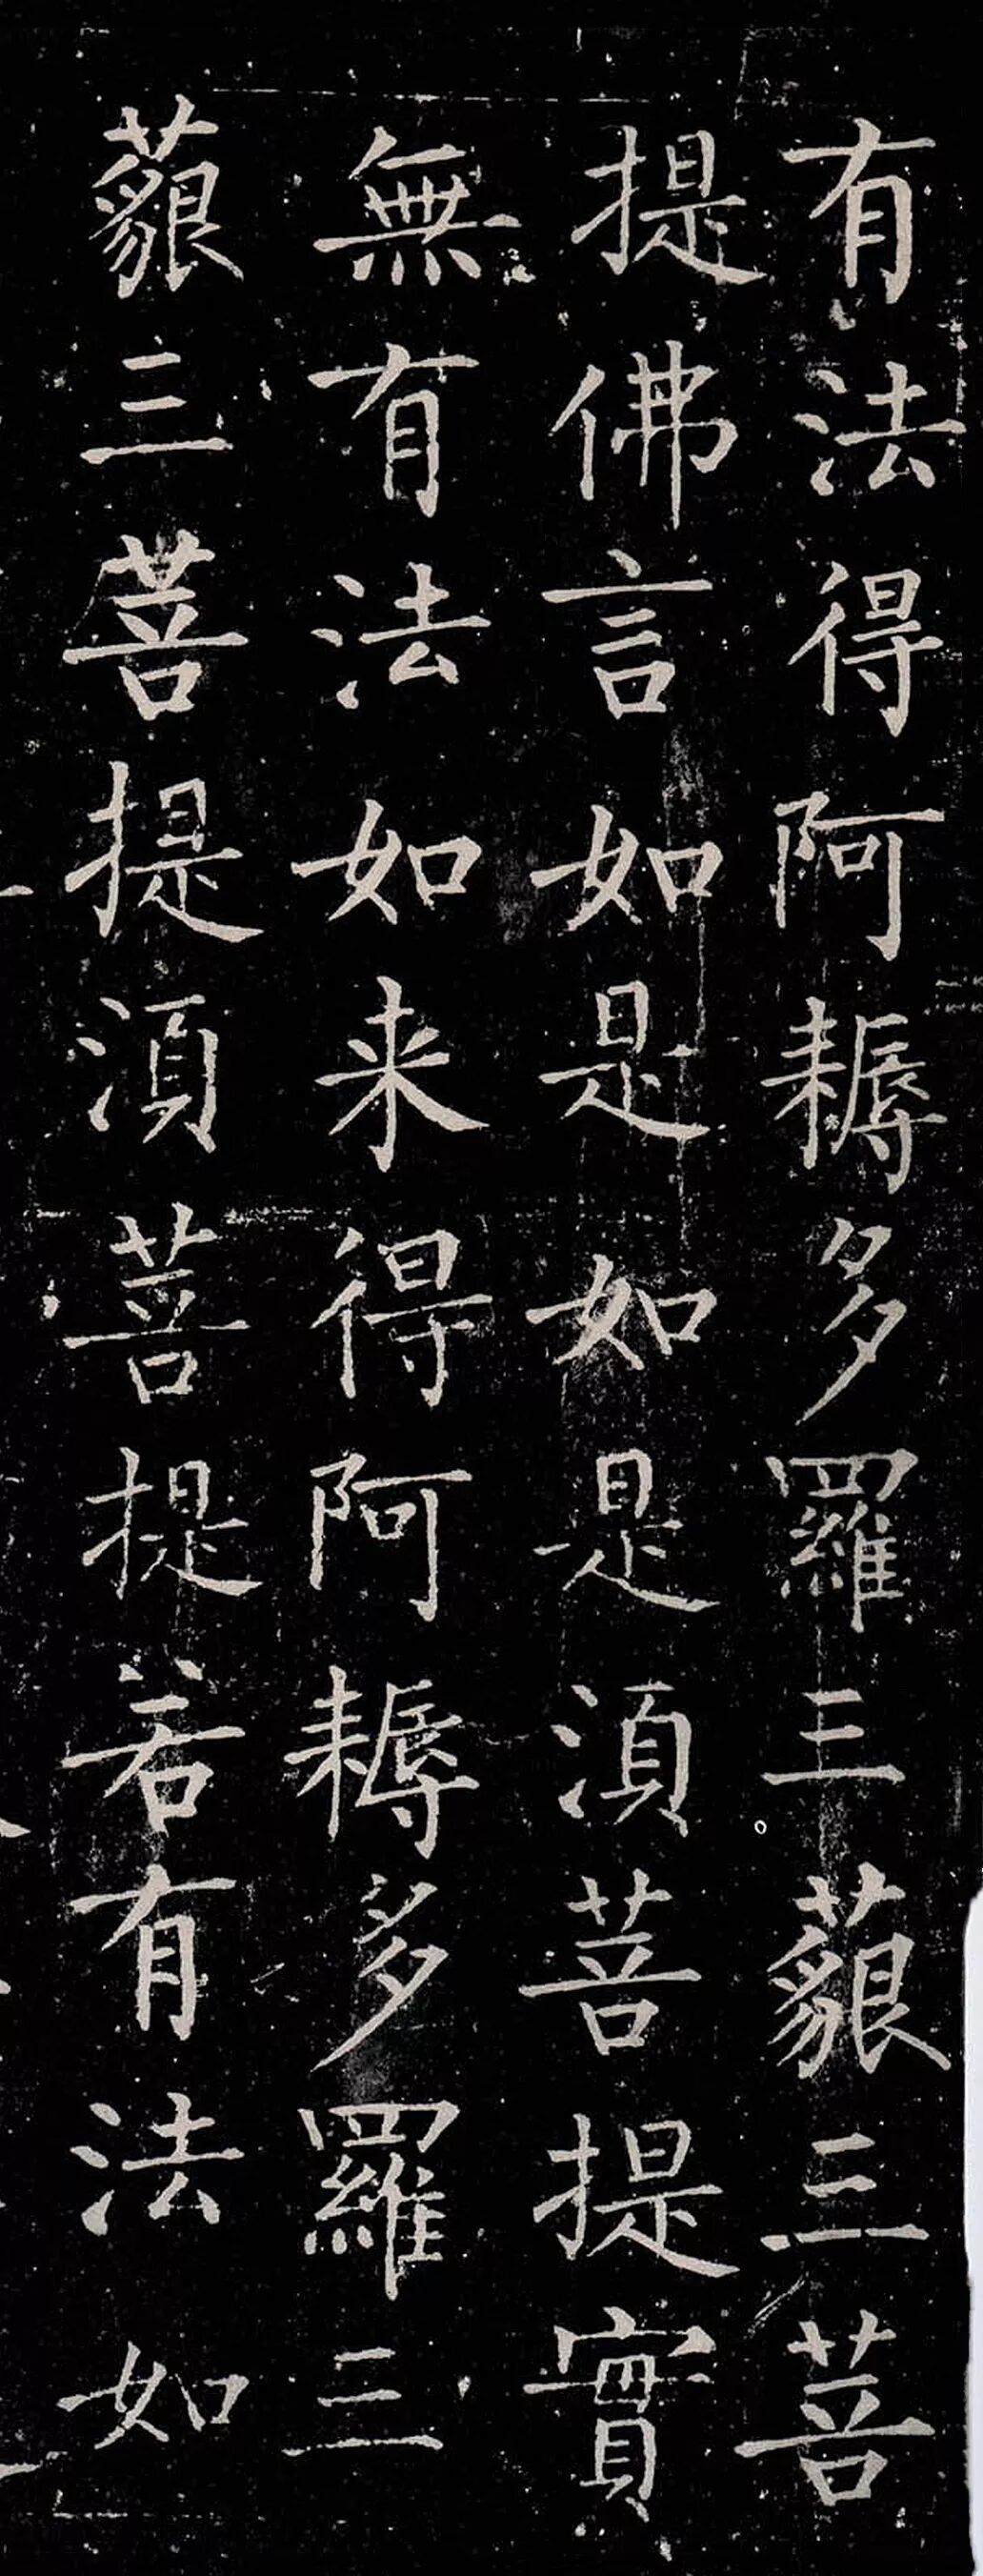 有法得阿耨多羅三藐三菩
提佛言如是如是須菩提實
無有法如来得阿耨多羅三
藐三菩提須菩提若有法如